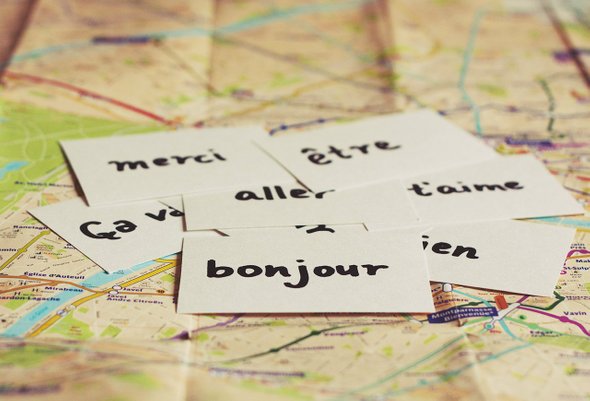 merci
être
aller
t'aime
Ça va
ien
bonjour
Église d'Auteuil
Mirabeau
Javel
Javel
André Citroën
Montparnasse
Bienvenüe
Vavin